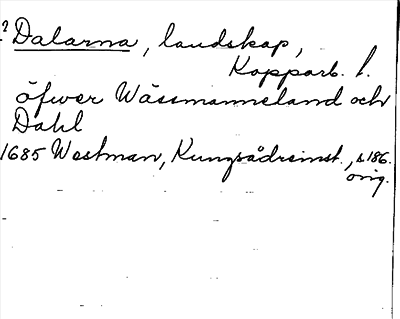 ? Dalarna, landskap,
Kopparb. l.
öfwer Wässmanneland och
Dahl
1685 Westman, Kungsådreinst., s 186.
orig.